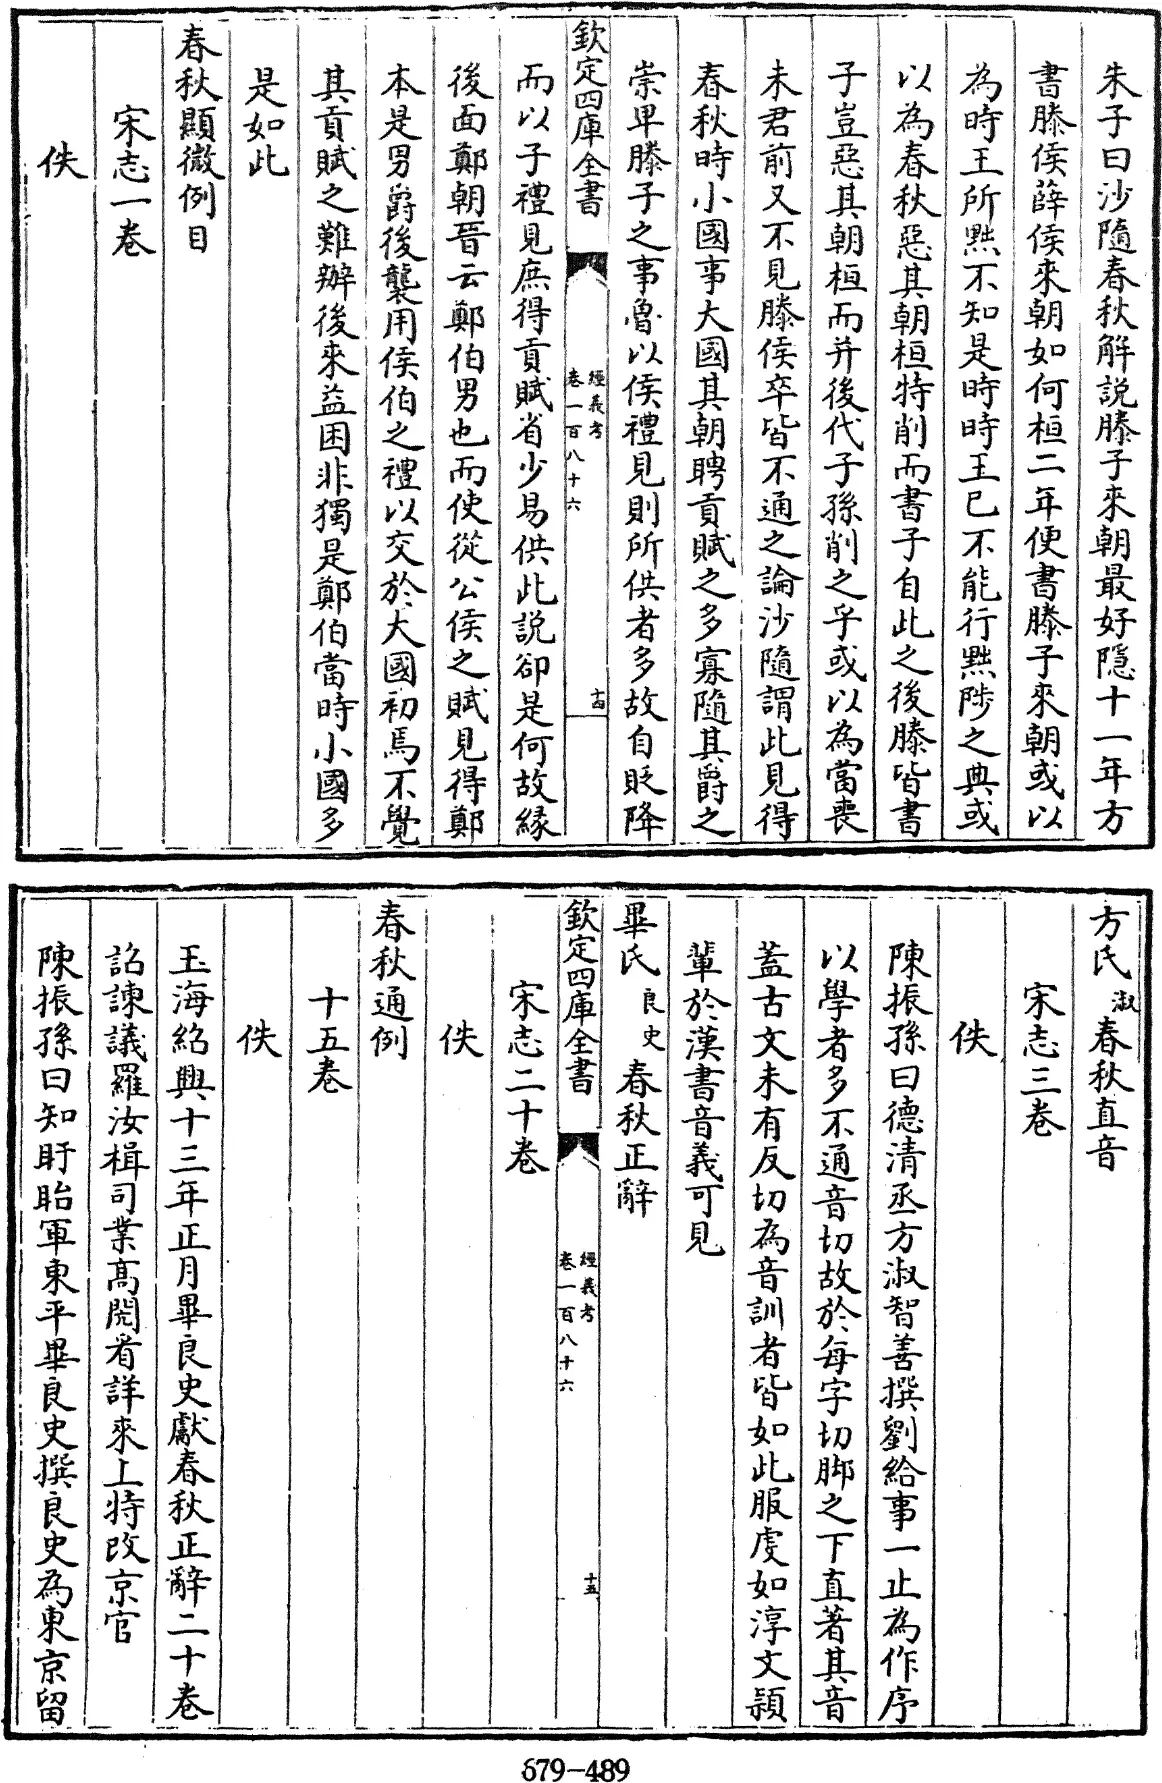 朱子曰沙隨春秋解説滕子來朝最好隱十一年方
書滕侯薛侯來朝如何桓二年便書滕子來朝或以
為時王所黜不知是時時王已不能行黜陟之典或
以為春秋惡其朝桓特削而書子自此之後滕皆書
子豈惡其朝桓而并後代子孫削之乎或以為當喪
未君前又不見滕侯卒皆不通之論沙隨謂此見得
春秋時小國事大國其朝聘貢賦之多寡隨其爵之
崇卑滕子之事魯以侯禮見則所供者多故自貶降
欽定四庫全書
經義考
卷一百八十六
十四
而以子禮見庶得貢賦省少易供此説卻是何故緣
後面鄭朝晉云鄭伯男也而使從公侯之賦見得鄭
本是男爵後襲用侯伯之禮以交於大國初焉不覺
其貢賦之難辦後來益困非獨是鄭伯當時小國多
是如此
春秋顯微例目
宋志一卷
佚
方氏淑春秋直音
宋志三卷
佚
陳振孫曰德清丞方淑智善撰劉給事一止為作序
以學者多不通音切故於每字切脚之下直著其音
蓋古文未有反切為音訓者皆如此服虔如淳文穎
輩於漢書音義可見
畢氏良史春秋正辭
欽定四庫全書
經義考
卷一百八十六
十五
宋志二十卷
佚
春秋通例
十五卷
佚
玉海紹興十三年正月畢良史獻春秋正辭二十卷
詔諫議羅汝楫司業高閌看詳來上特改京官
陳振孫曰知盱眙軍東平畢良史撰良史為東京留
679-489